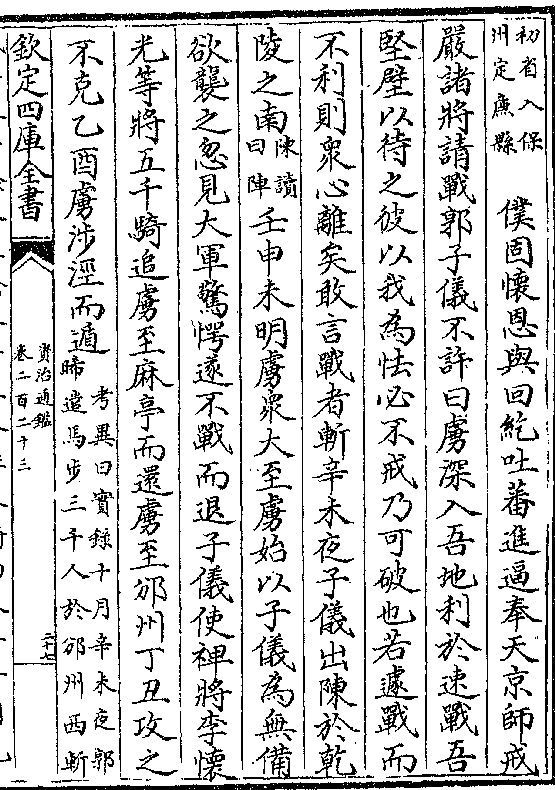 初省入保
州定廉縣
僕固懷恩與回紇吐蕃進逼奉天京師戒
嚴諸將請戰郭子儀不許曰虜深入吾地利於速戰吾
堅壁以待之彼以我為怯必不戒乃可破也若遽戰而
不利則衆心離矣敢言戰者斬辛未夜子儀出陳於乾
陵之南
陳讀
曰陣
壬申未明虜衆大至虜始以子儀為無備
欲襲之忽見大軍驚愕遂不戰而退子儀使裨將李懷
光等將五千騎追虜至麻亭而還虜至邠州丁丑攻之
不克乙酉虜涉涇而遁
考異曰實録十月辛未夜郭
晞遣馬步三千人於邠州西斬
欽定四庫全書
資治通鑑
卷二百二十三
二十七